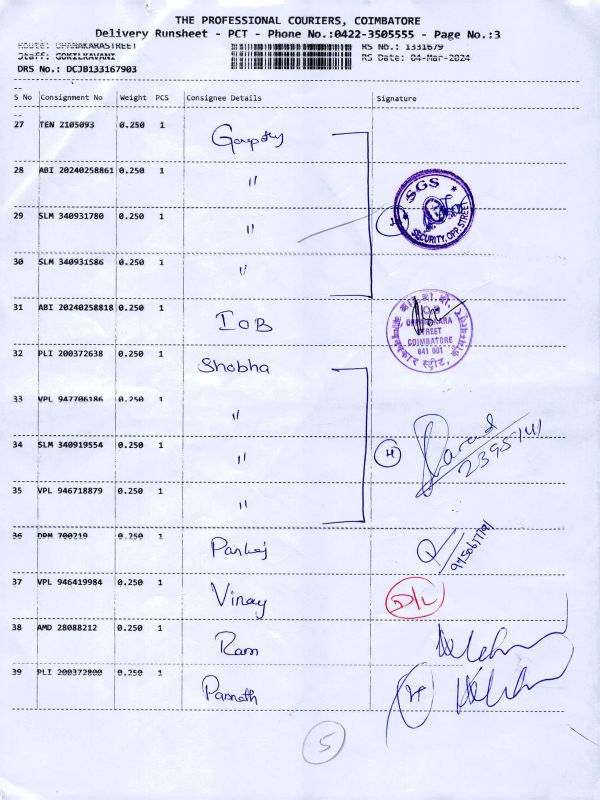 THE PROFESSIONAL COURIERS, COIMBATORE
Delivery Runsheet - PCT - Phone No.:0422-3505555 - Page No.:3
Route: OPANAKARASTREET RS No.: 1331679
Staff: GOKILKAVANI RS Date: 04-Mar-2024
DRS No.: DCJB133167903
S No Consignment No Weight PCS Consignee Details Signature
27 TEN 2105093 0.250 1
28 ABI 20240258861 0.250 1 "
SGS
29 SLM 340931780 0.250 1 "
SECURITY, OPP. STREET
30 SLM 340931586 0.250 1 "
31 ABI 20240258818 0.250 1 IOB
STREET
COIMBATORE
641 001
32 PLI 200372638 0.250 1 Shobha
33 VPL 947706186 0.250 1 "
34 SLM 340919554 0.250 1 " H
35 VPL 946718879 0.250 1 "
36 DPM 700219 0.250 1 Pankaj
37 VPL 946419984 0.250 1 Vinay D/L
38 AMD 28088212 0.250 1 Ram
39 PLI 200372800 0.250 1 H
5